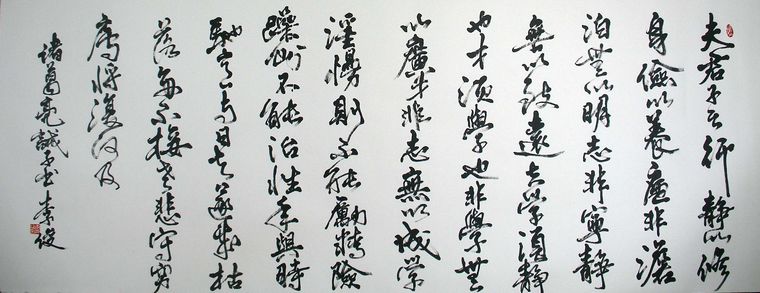 夫君子之行靜以修
身儉以養非澹
泊無以明志非寧靜
無以致遠夫學須靜
也才須學也非學無
以廣才非志無以成學
淫慢則不能勵精險
躁則不能治性年與時
馳意與日去遂成枯
落多不接世悲守窮
廬將復何及
諸葛亮誡子書 李俊